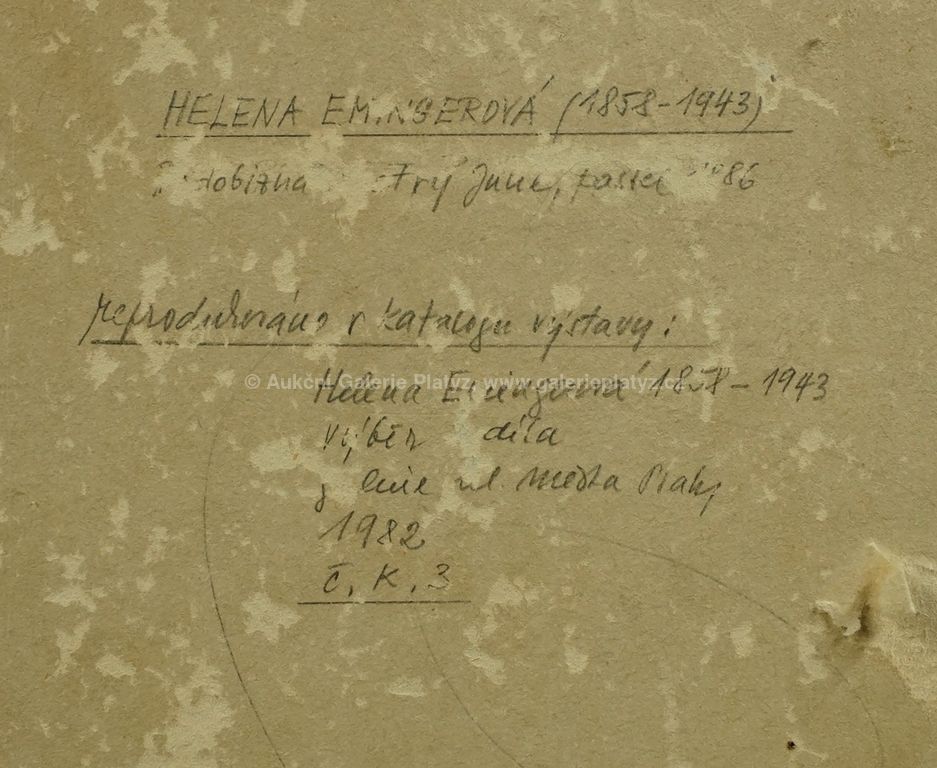 HELENA EMINGEROVÁ (1858-1943)
Jane, pastel
reprodukováno v katalogu výstavy:
© Aukční Galerie Platýz, www.galerieplatyz.cz
Helena Emingerová 1858-1943
výběr díla
hl. města Prahy
1982
č. k. 3